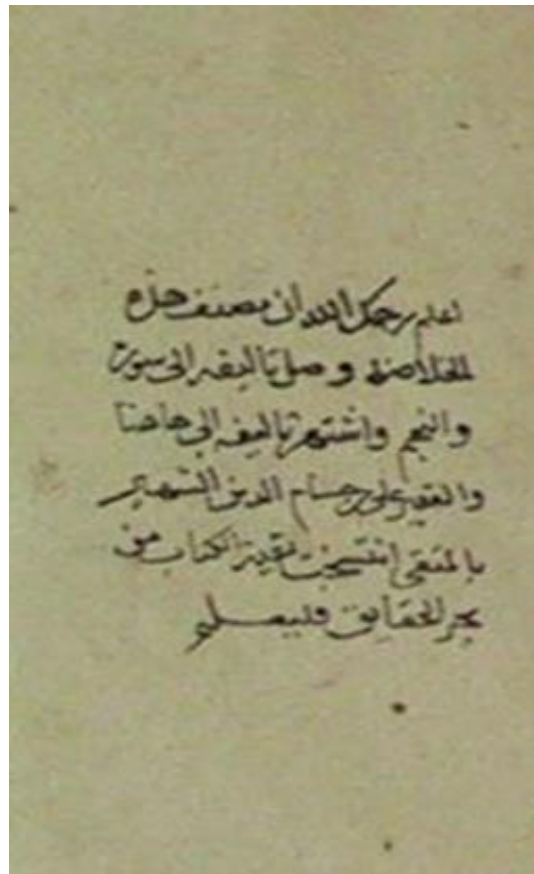 اعلم رحمك الله ان مصنف هذه
الخلاصة وصل تاليفه الى سورة
والنجم واشتهر تاليفه الى هاهنا
والفقير علي بن حسام الدين الشهير
بالمتقي انتسخت بقية الكتاب من
بحر الحقايق فليعلم